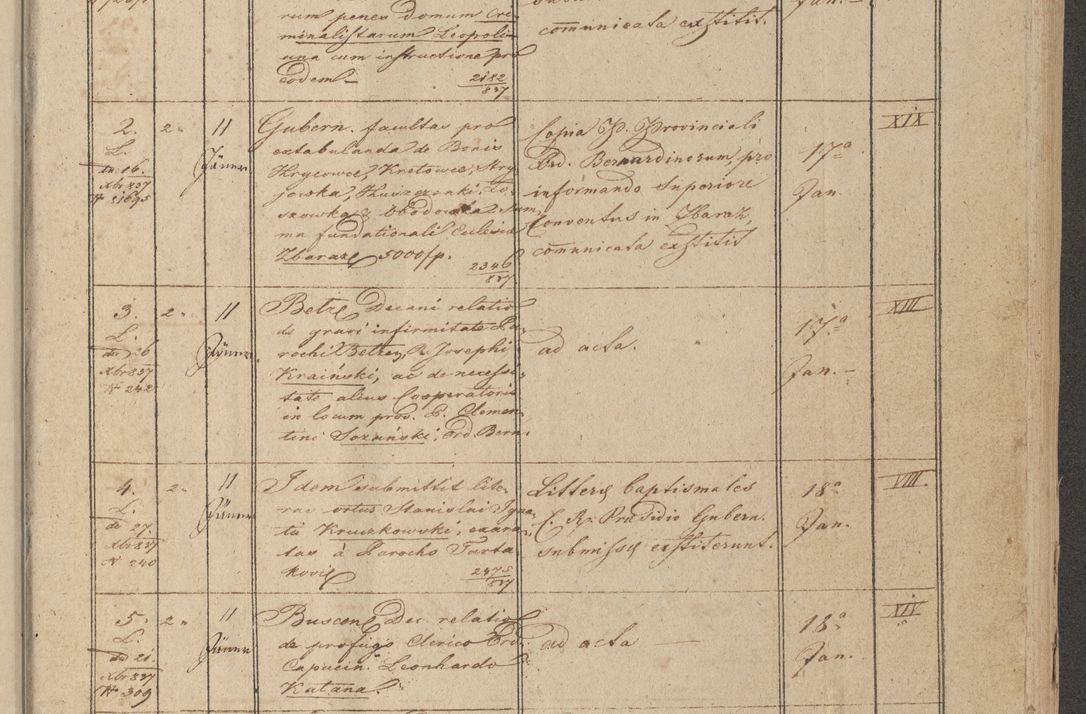 rum penes domum Cri-
minalistarum Leopoli-
una cum instructione pro
eodem.
2182
837
comunicata exstitit.
Jan.
2. 2. 11
L. Jänner
de 16.
Xbr 837
N 21695
Gubern. facultas pro
extabulanda de Bonis
Hrycowce, Kretowce, Stry-
jowka,
ma fundationali Ecclesiae
Zbaraz 5000 fr.
2346
837
Copia P. Provinciali
Ord. Bernardinorum, pro
informando Superiore
Conventus in Zbaraz,
comunicata exstitit
17a
Jan.
XIX
3. 2. 11
L. Jänner.
de 26
Xbr 837
N 242
Belze Decani relatio
de gravi infirmitate Pa-
rochi Belzen, R. Josephi
Kraiński, ac de necessi-
tate alius Cooperatoris
in locum prod. P. Clemen-
tini Sozański, Ord. Bern.
ad acta.
17a
Jan.
XIII
4. 2. 11
L. Jänner
de 27.
Xbr 837
N 240
Idem submittit lite-
ras ortus Stanislai Igna-
tii Kruszkowski, exara-
tas à Parocho Tarta-
kovie
2475
837
Litterae baptismales
C. R. Praesidio Gubern.
submissae exstiterunt.
18a
Jan.
VIII.
5. 2. 11
L. Jänner
de 21.
Xbr 837
N 309
Buscen Dec. relatio
de profugo Clerico Ord.
Capucin. Leonhardo
Katana.
ad acta
18a
Jan.
XIV